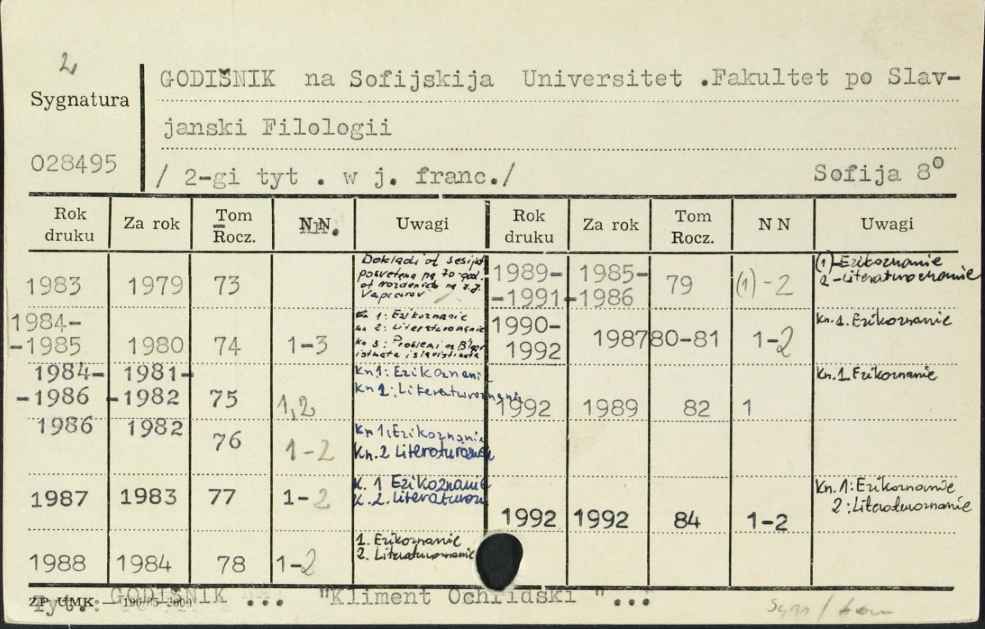 2
GODIŠNIK na Sofijskija Universitet .Fakultet po Slav-
Sygnatura
janski Filologii
028495
/ 2-gi tyt . w j. franc./ Sofija 8°
Rok druku Za rok Tom Rocz. NN. Uwagi Rok druku Za rok Tom Rocz. N N Uwagi
1983 1979 73 Dokladi ot sesija
posvetena na 70 god.
ot roždenieto na
Vapcarov
1989-1991 1985-1986 79 (1)-2 (1)-Ezikoznanie
2-Literaturoznanie
1984-1985 1980 74 1-3 Kn 1: Ezikoznanie
Kn 2: Literaturoznanie
Kn 3: Problemi na
1990-1992 1987 80-81 1-2 Kn.1. Ezikoznanie
1984-1986 1981-1982 75 1,2 Kn 1: Ezikoznanie
Kn 2: Literaturoznanie
1992 1989 82 1 Kn.1. Ezikoznanie
1986 1982 76 1-2 Kn 1: Ezikoznanie
Kn. 2 Literaturoznanie
1987 1983 77 1-2 K. 1 Ezikoznanie
K. 2. Literaturozn
1992 1992 84 1-2 Kn. 1: Ezikoznanie
2: Literaturoznanie
1988 1984 78 1-2 1. Ezikoznanie
2. Literaturoznanie
Tyt.: GODIŠNIK ... "Kliment Ochridski "...
ZP UMK